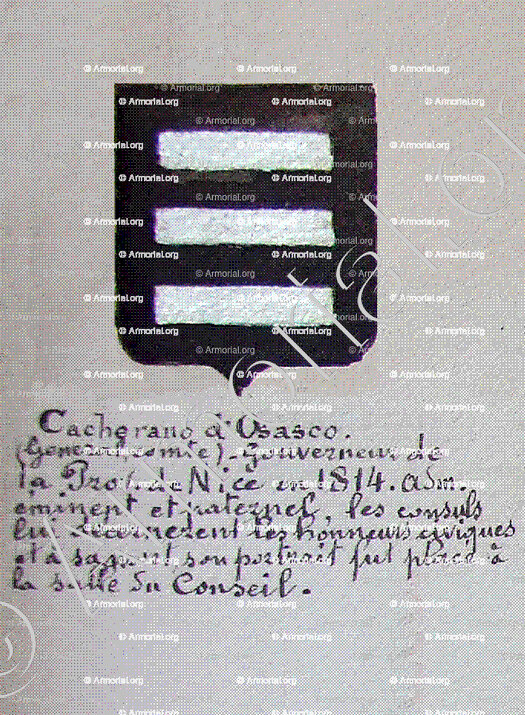 Cacherano d'Osasco.
gouverneur de
la Prov. de Nice en 1814. Adm.
éminent et paternel, les consuls
lui décernèrent les honneurs civiques
et à sa mort son portrait fut placé à
la salle du Conseil.
© Armorial.org